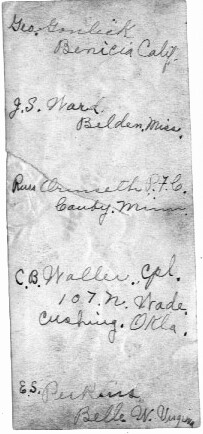 Geo. Gorlick
Benicia Calif.
J.S. Ward.
Belden, Miss.
Russ Armseth P.F.C.
Canby, Minn.
C.B. Waller, Cpl.
107. N. Wade
Cushing. Okla.
E.S. Perkins
Belle W. Virginia